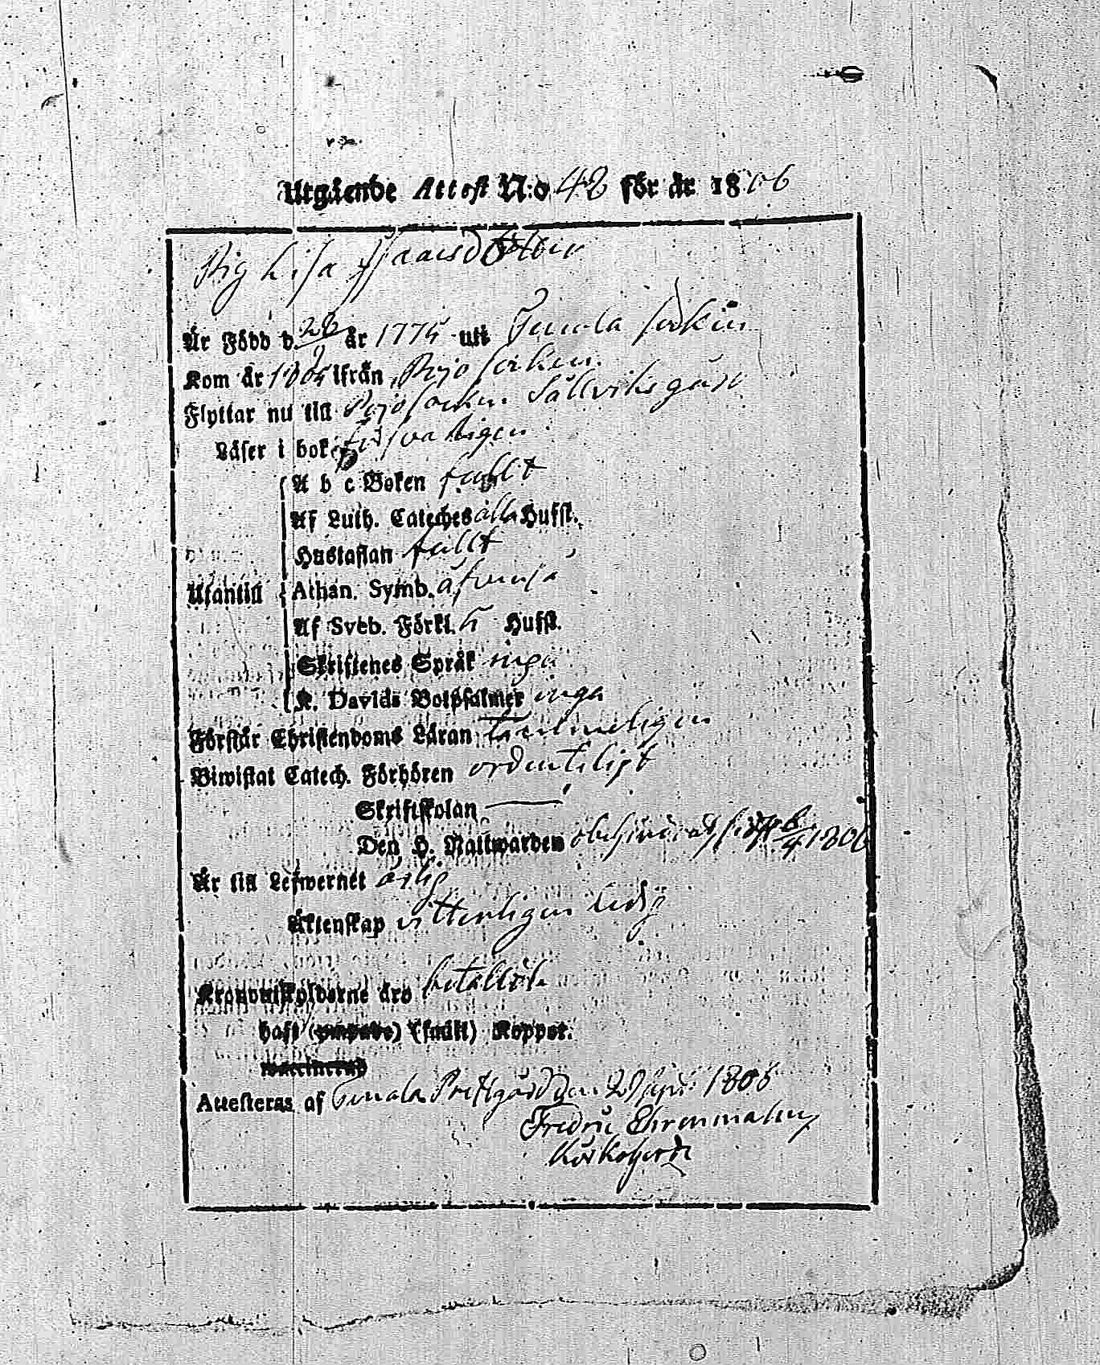 Utgående Attest N:o 42 för år 1806
Pig Lisa Isaacsdotter
Är Född d. 28/9 år 1775 uti Tenala sockn
Kom år 1805 ifrån Pojo socken
Flyttar nu till Pojo socken Sållviks gård
Läser i boken försvarligen
A b c Boken fullt
Af Luth. Cateches alla Hufst.
Hustaflan fullt
Utantill Athan. Symb. äfwenså
Af Sveb. Förkl. 5 Hufst.
Skriftenes Språk inga
K. Davids Botpsalmer inga
Förstår Christendoms Läran tämmeligen
Biwistat Catech. Förhören ordenteligt
Skriftskolan —
Den H. Nattwarden 6/4 1806
Är till Lefwernet ärlig
Äktenskap vitterligen ledig
Kronoutskylderne äro betalte
haft (slagit) Koppor.
Attesteras af Tenala Prestgård den 1806
Fredric Ehrenmalm
Kyrkoherde